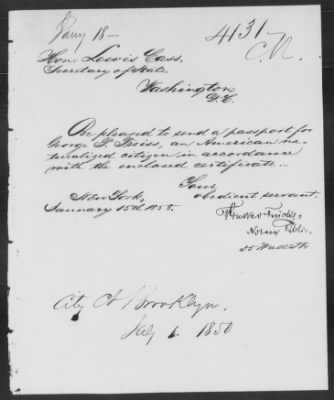 Jany 18 —
4131 —
C. N.
Hon. Lewis Cass.
Secretary of State.
Washington
D.C.
Be pleased to send a passport for
George P. Freiss, an American na-
turalized citizen in accordance
with the enclosed certificate.
Your
obedient servant.
New York,
January 15th 1858.
Notary Public.
35 Wall St.
City Ct Brooklyn.
July 1. 1850